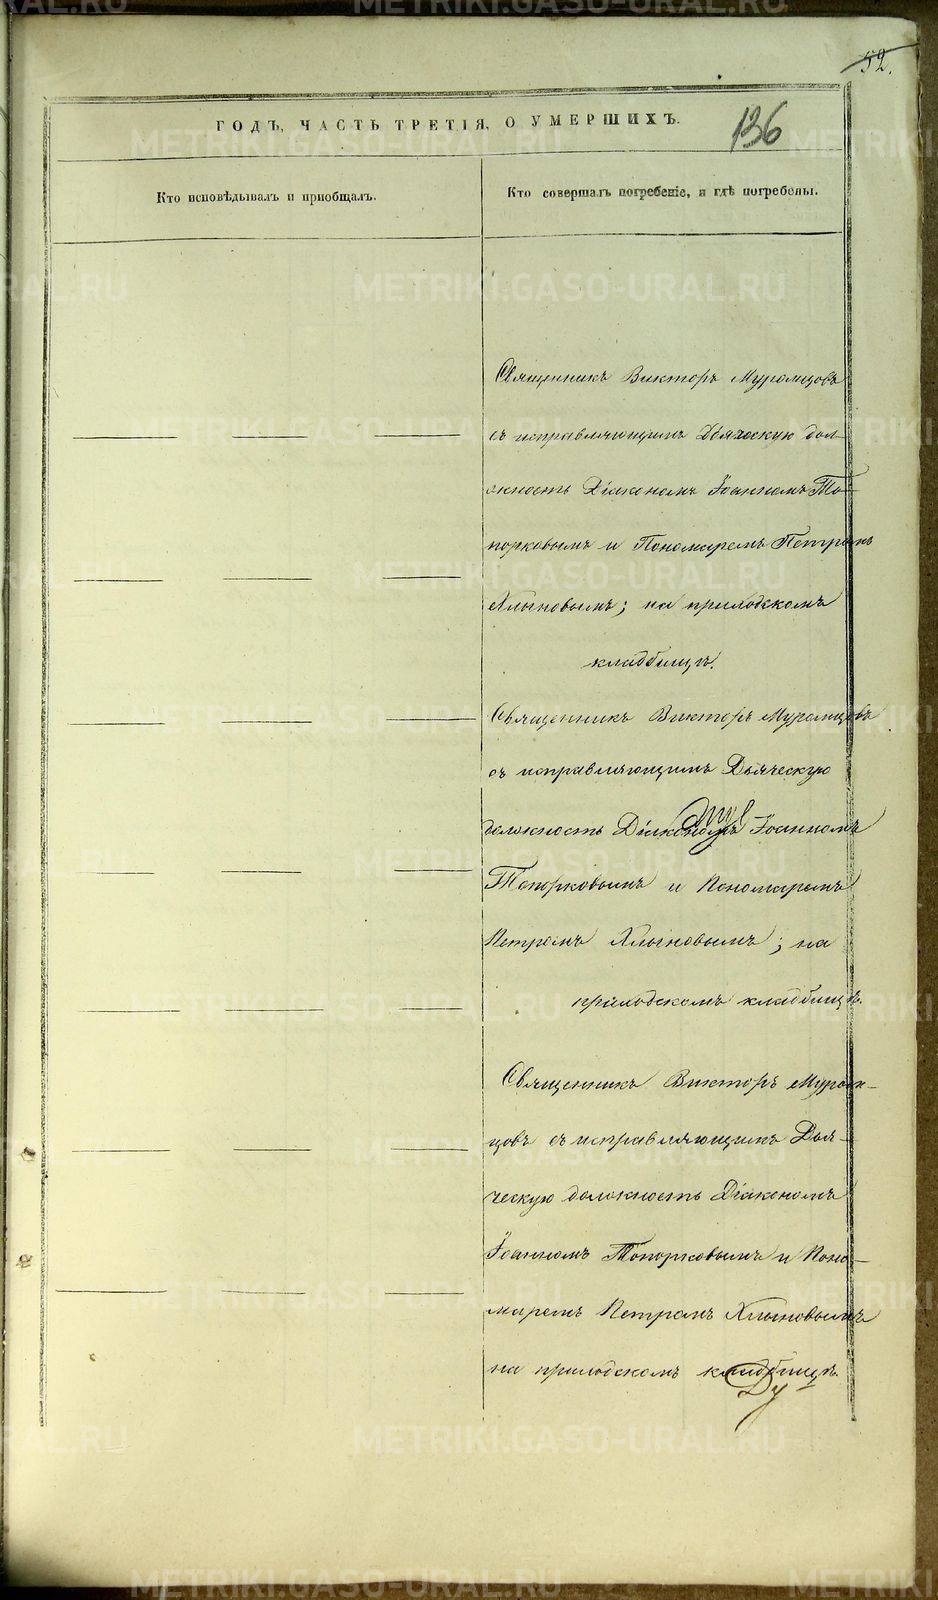 52.
ГОДЪ, ЧАСТЬ ТРЕТІЯ, О УМЕРШИХЪ.
136
Кто исповѣдывалъ и пріобщалъ.
Кто совершалъ погребеніе, и гдѣ погребены.
Священникъ Викторъ Муромцовъ
съ исправляющимъ Дьяческую дол-
жность Діакономъ Іоанномъ То-
порковымъ и Пономаремъ Петромъ
Хлыновымъ; на приходскомъ
кладбищѣ.
Священникъ Викторъ Муромцовъ
съ исправляющимъ Дьяческую
должность Діакономъ Іоанномъ
Топорковымъ и Пономаремъ
Петромъ Хлыновымъ; на
приходскомъ кладбищѣ.
Священникъ Викторъ Муром-
цовъ съ исправляющимъ Дья-
ческую должность Діакономъ
Іоанномъ Топорковымъ и Поно-
маремъ Петромъ Хлыновымъ
на приходскомъ кладбищѣ.
METRIKI.GASO-URAL.RU